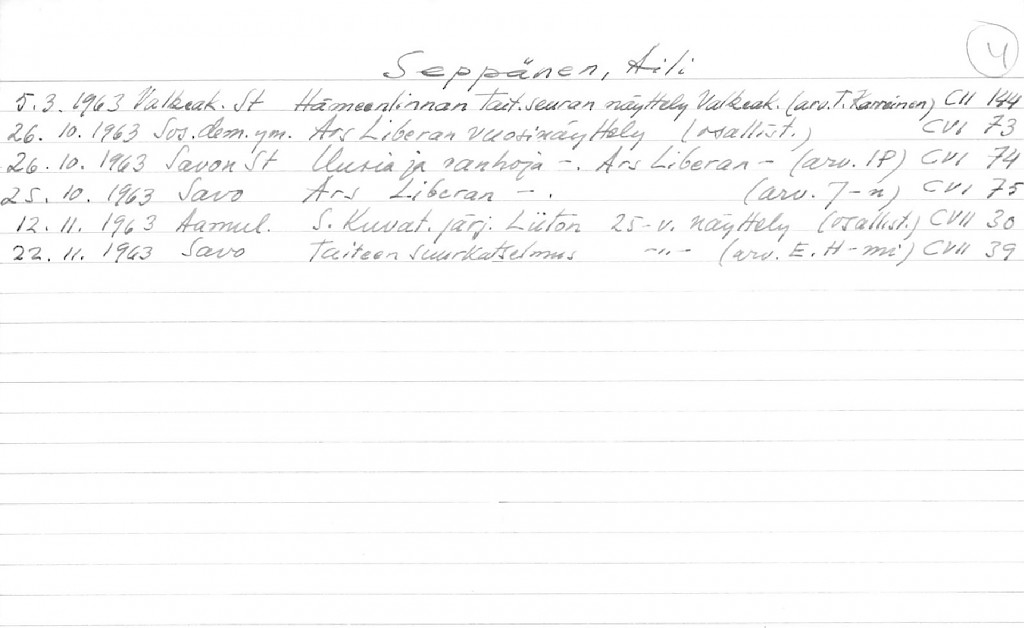 4
Seppänen, Aili
5.3.1963 Valkeak. St Hämeenlinnan Tait.seuran näyttely Valkeak. (arv. T. Karreinen) CII 144
26.10.1963 Sos.dem.ym. Ars Liberan vuosinäyttely (osallist.) CVI 73
26.10.1963 Savon St Uusia ja vanhoja -. Ars Liberan - (arv. IP) CVI 74
25.10.1963 Savo Ars Liberan -. (arv. 7-n) CVI 75
12.11.1963 Aamul. S. Kuvat. järj. Liiton 25-v. näyttely (osallist.) CVII 30
22.11.1963 Savo Taiteen suurkatselmus -"- (arv. E. H-mi) CVII 39